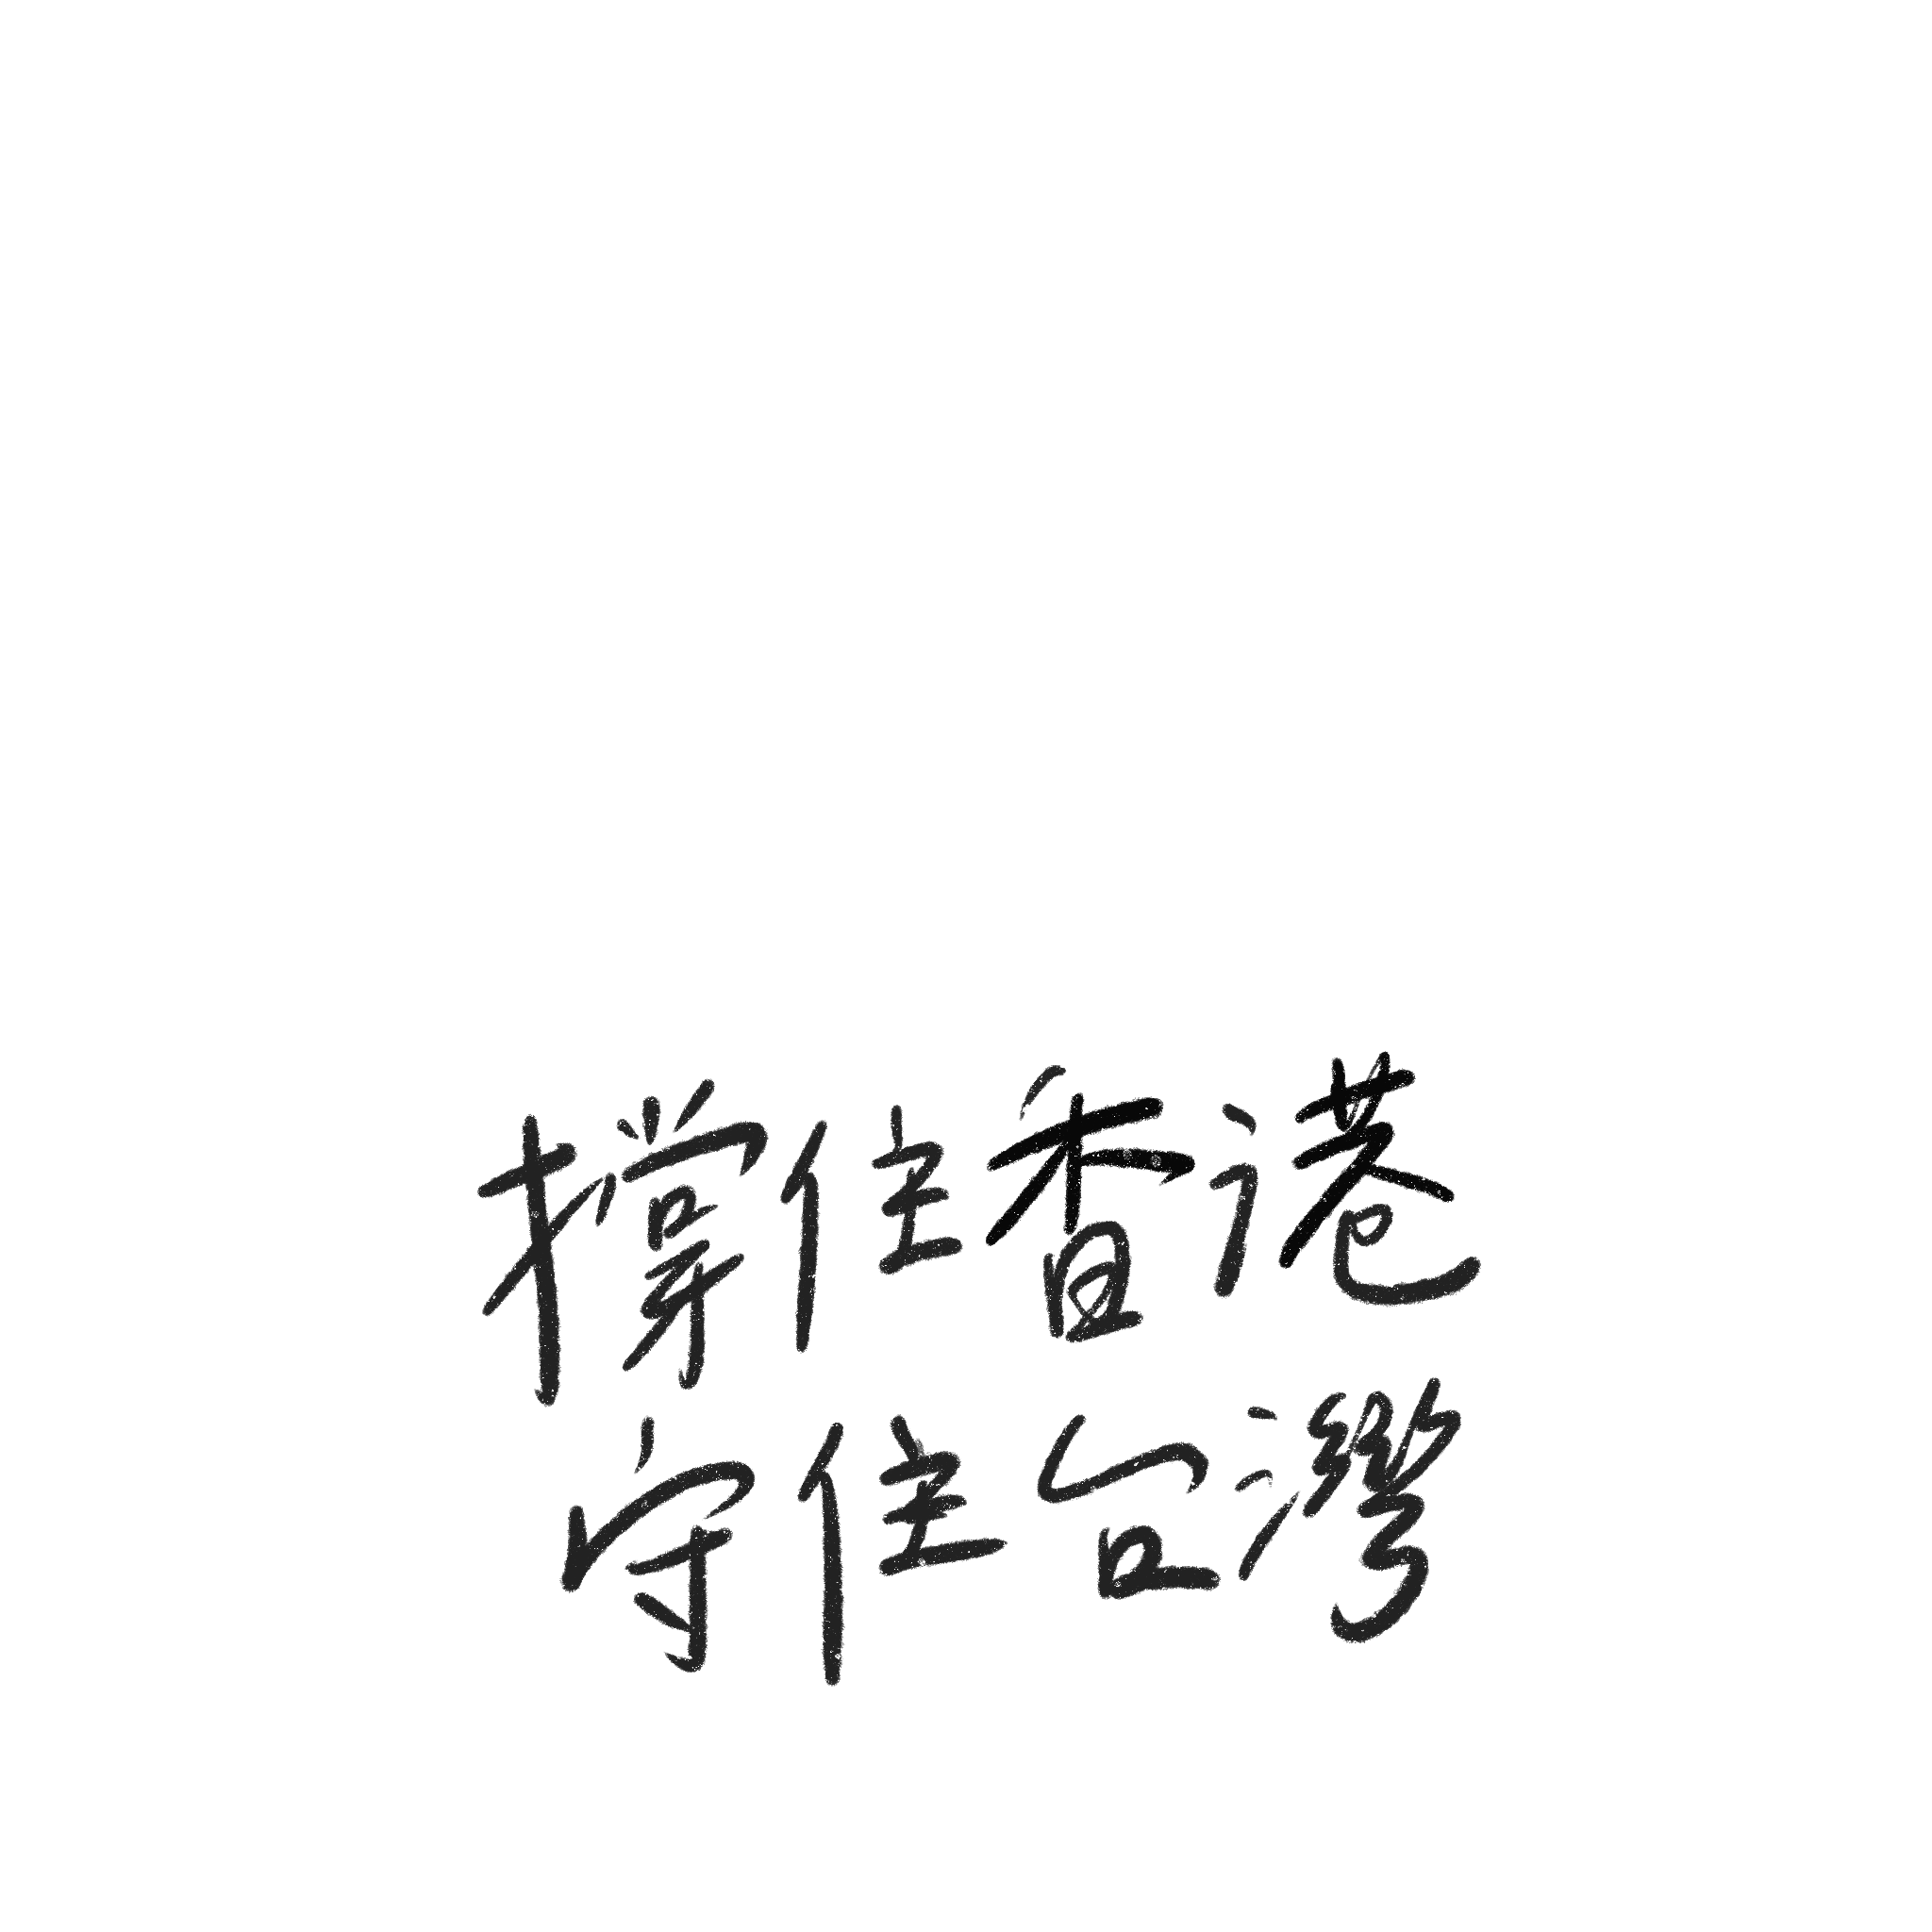 撐住香港
守住台灣